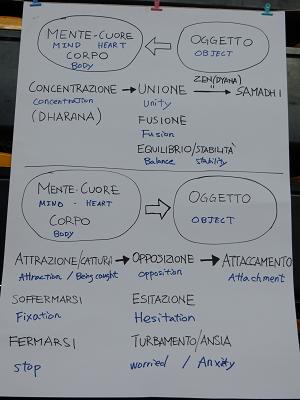 MENTE-CUORE
MIND HEART
CORPO
BODY
OGGETTO
OBJECT
ZEN (DYANA)
CONCENTRAZIONE → UNIONE → SAMADHI
Concentration Unity
(DHARANA) FUSIONE
Fusion
EQUILIBRIO/STABILITÀ
Balance stability
MENTE-CUORE
MIND - HEART
CORPO
BODY
OGGETTO
OBJECT
ATTRAZIONE/CATTURA → OPPOSIZIONE → ATTACCAMENTO
Attraction / Being caught opposition Attachment
SOFFERMARSI ESITAZIONE
Fixation Hesitation
FERMARSI TURBAMENTO/ANSIA
stop worried / Anxity